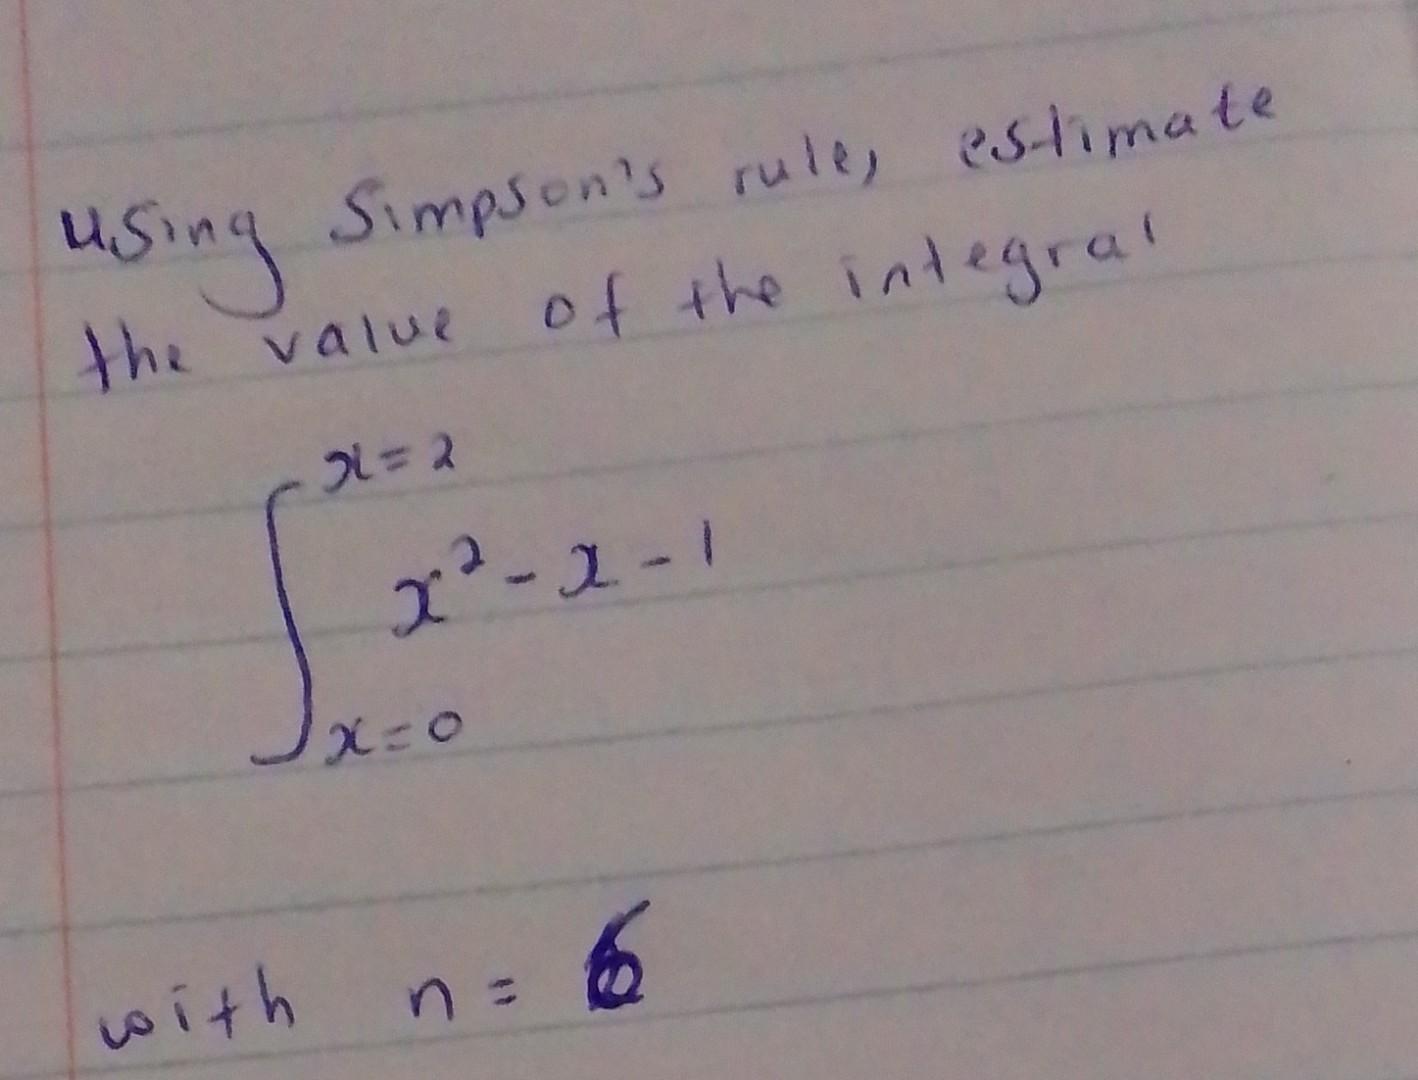 using Simpson's rule, estimate
the value of the integral
x=2
∫ x² - x - 1
x=0
with n = 6